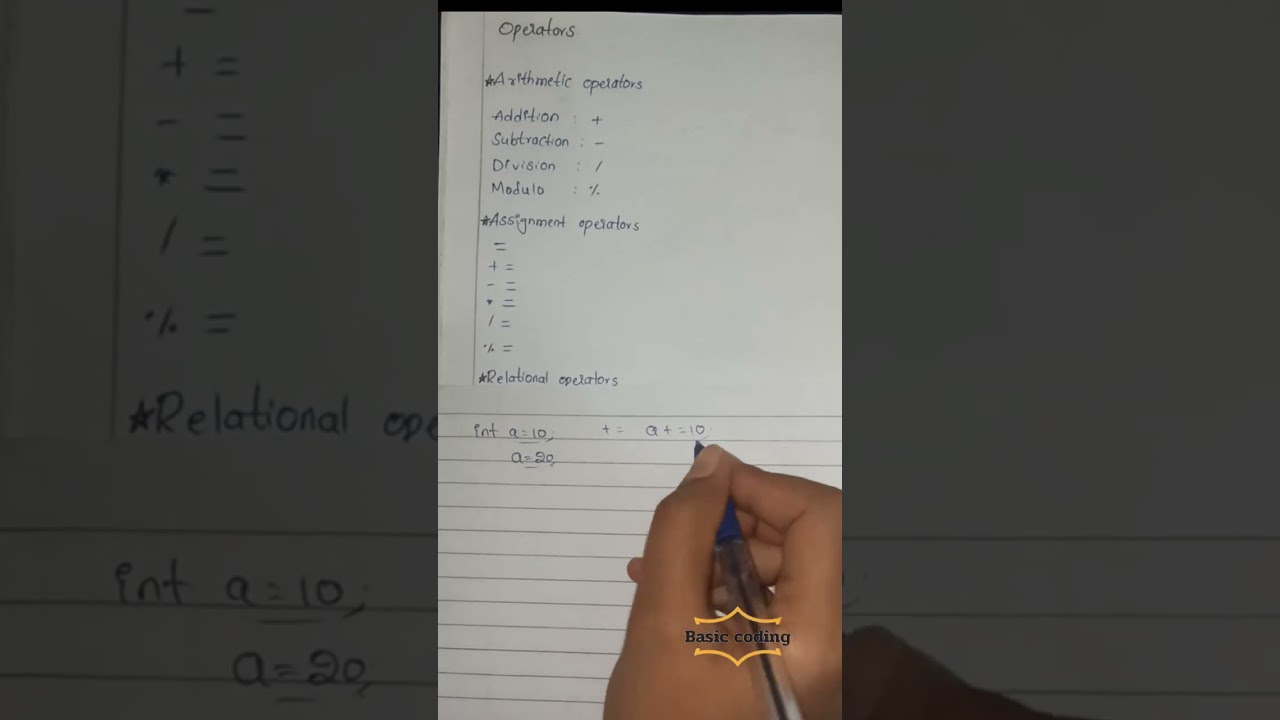 Operators
*Arithmetic operators
Addition : +
Subtraction : -
Division : /
Modulo : %
*Assignment operators
=
+ =
- =
* =
/ =
% =
*Relational operators
int a=10; + = a+=10;
a=20,
Basic coding